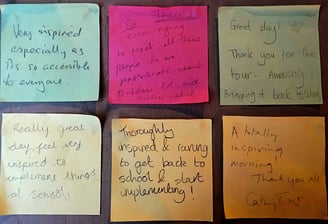 Very inspired
especially as
it's so accessible
to everyone.
Thanks
So
encouraging
to meet all these
people who are
passionate about
Outdoor Ed and
Great day!
Thank you for the
tour - Amazing.
Bringing it back to school
Really great
day, feel very
inspired to
implement things
at School!
Thoroughly
inspired & raring
to get back to
school & start
implementing!
A totally
inspiring
morning!
Thank you all